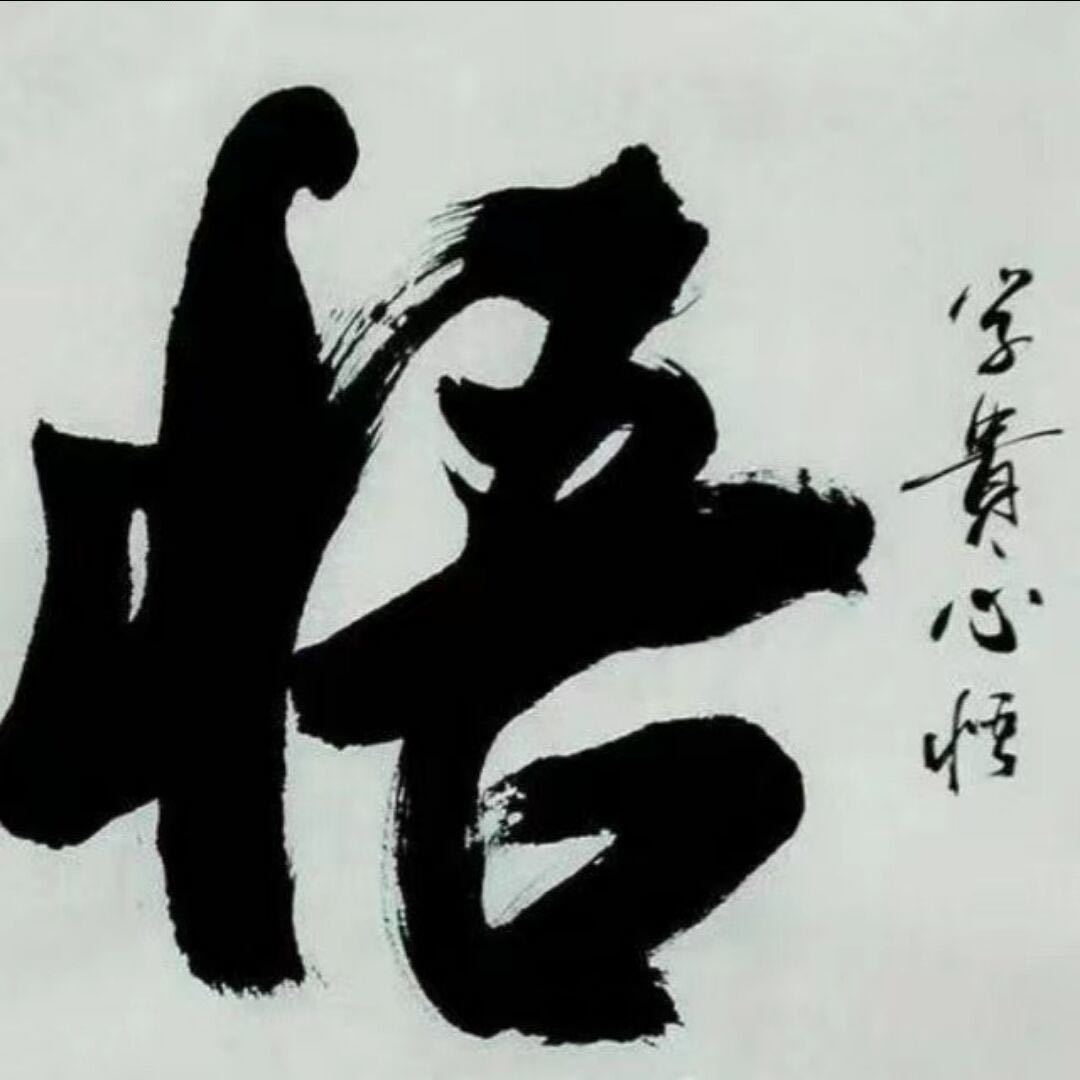 悟
学贵心悟